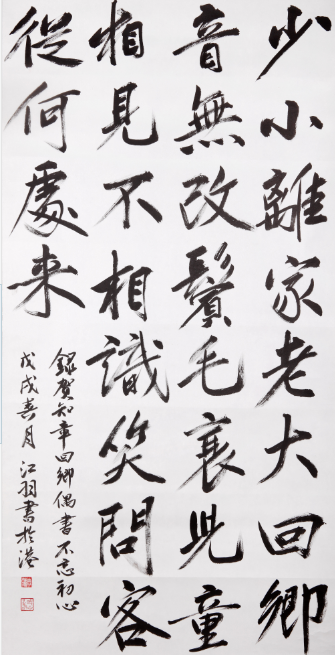 少小離家老大回鄉
音無改鬢毛衰兒童
相見不相識笑問客
從何處来
錄賀知章回鄉偶書不忘初心
戊戌春月江羽書於港